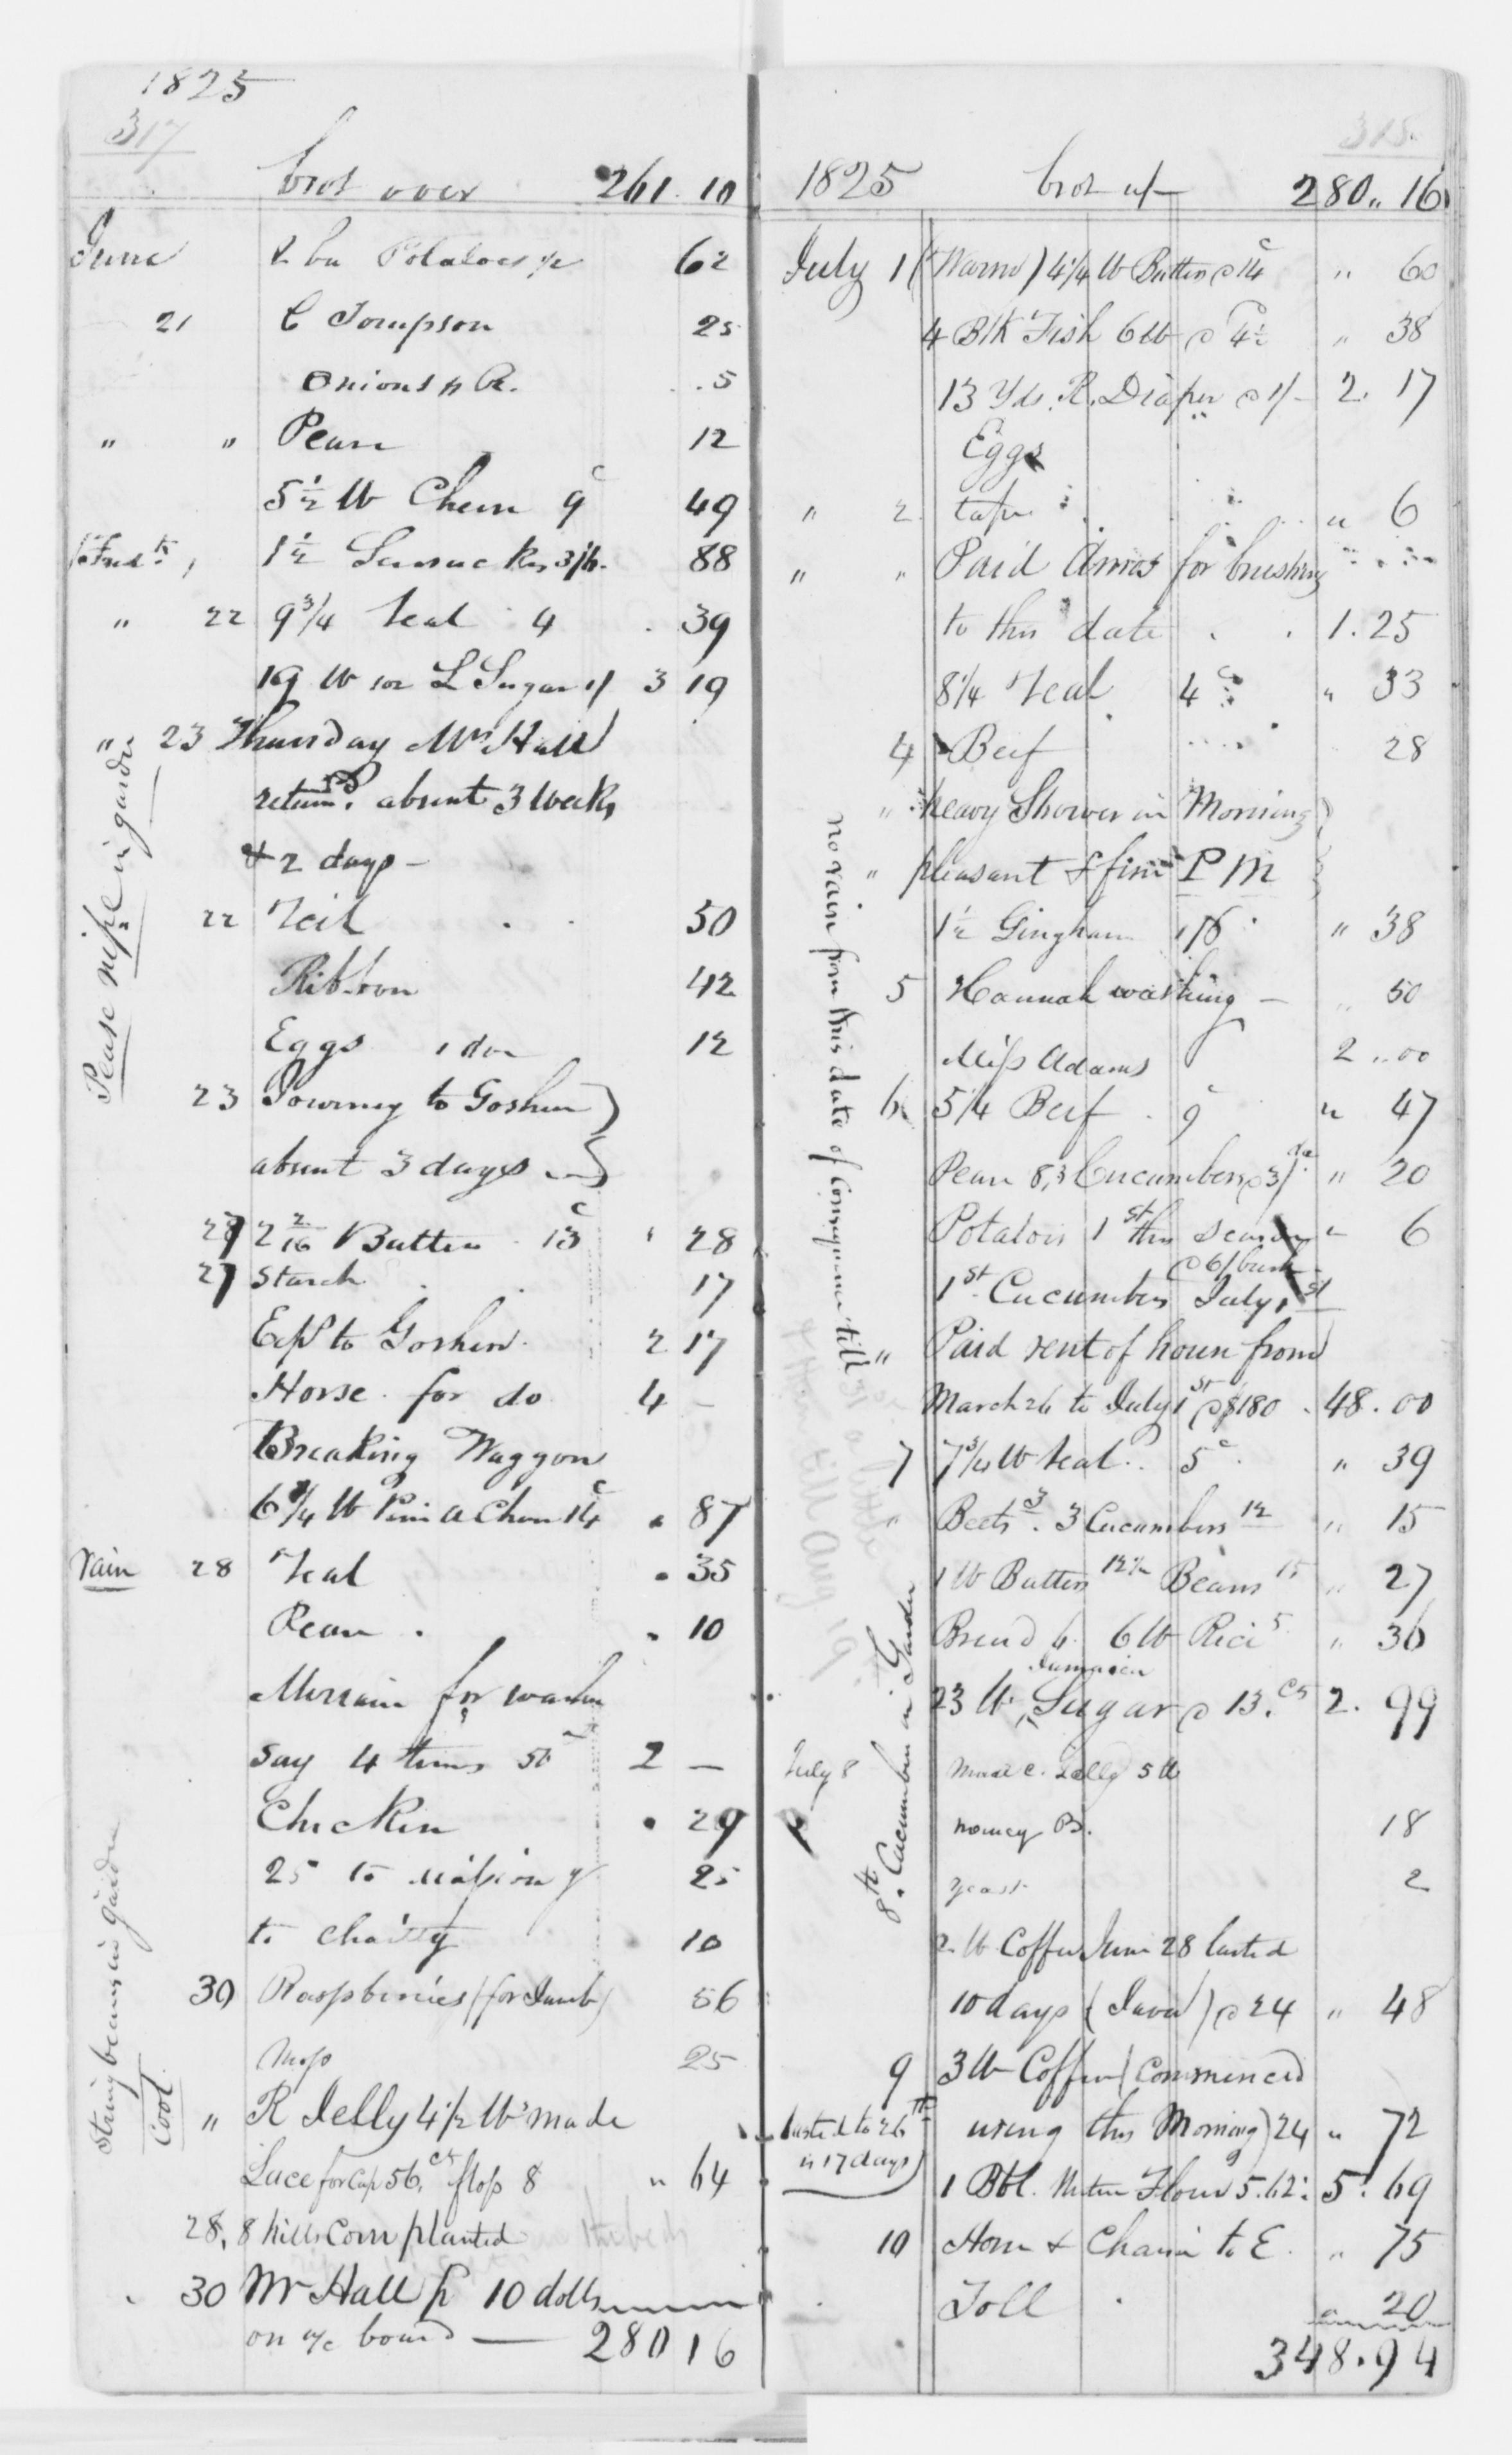 1825
317
brot over 261.10
June 2 bu Potatoes 62
21 C Tompson 25
Onions 5
" " Peas 12
5 1/2 lb Chees 9c 49
1 1/2 3/6 88
" 22 9 3/4 Veal 4 39
19 lb L Sugar 1/ 3 19
" 23 Thursday Mrs Hall
returnd. absent 3 weeks
& 2 days –
22 Veil 50
Ribbon 42
Eggs 1 doz 12
23 Journey to Goshen
absent 3 days
27 2 2/16 Butter 13c " 28
27 Starch 17
Exps to Goshen 2 17
Horse for do 4 –
Breaking Waggon
6 1/4 lb Pine A Chees 14c " 87
Rain 28 Veal " 35
Peas " 10
for washing
say 4 times 50 2 –
Chicken " 29
25 to missiony 25
to charity 10
30 Raspberries (for Jamb) 56
Mop 25
" R Jelly 4 1/2 lbs made
Lace for Cap 56, cts 8 " 64
28. 8 hills Corn planted
30 Mr Hall 10 dolls
on a/c board — 280 16
Pease ripe in garden
String beans in garden
Cool
318
1825 brot u/– 280 " 16
July 1 (Warm) 4 1/4 lb Butter @ 14c " 60
4 Blk Fish 6 lb @ 4 1/2 " 38
13 Yds. R. Diaper @ 1/– 2. 17
Eggs
" 2 tape " 6
" " Paid Amos for brushing
to this date 1.25
8 1/4 Veal 4c " 33
4 Beef 28
" heavy Shower in Morning
" pleasant & fine PM
1 1/2 Gingham 1/6 " 38
5 Hannah washing – " 50
Miss Adams 2 " 00
6 5 1/4 Beef 9c " 47
Peas 8, 3 Cucumbers @ 3/ " 20
Potatoes 1st this season " 6
@ 6/ bush
1st Cucumbers July 1st
" Paid rent of house from
March 26 to July 1st @ $180 . 48.00
7 7 3/4 lb Veal 5c " 39
" Beets 3. 3 Cucumbers 12 " 15
1 lb Butter 12 1/2 Beans 15 " 27
Bread 6 6 lb Rice 5 " 36
Jamaica
23 lb. Sugar @ 13. cts 2. 99
July 8 made C. Jelly 5 lb
B. 18
yeast 2
2 lb Coffee June 28 lasted
10 days (Java) @ 24 " 48
9 3 lb Coffee (Commenced
lasted to 26th using this Morning) 24 " 72
is 17 days
1 Bbl. Flour 5.62 5. 69
10 Horse & Chaise to E. " 75
Toll " 20
348.94
no rain from this date of consequence till
8th. Cucumber in Garden
till Aug 19